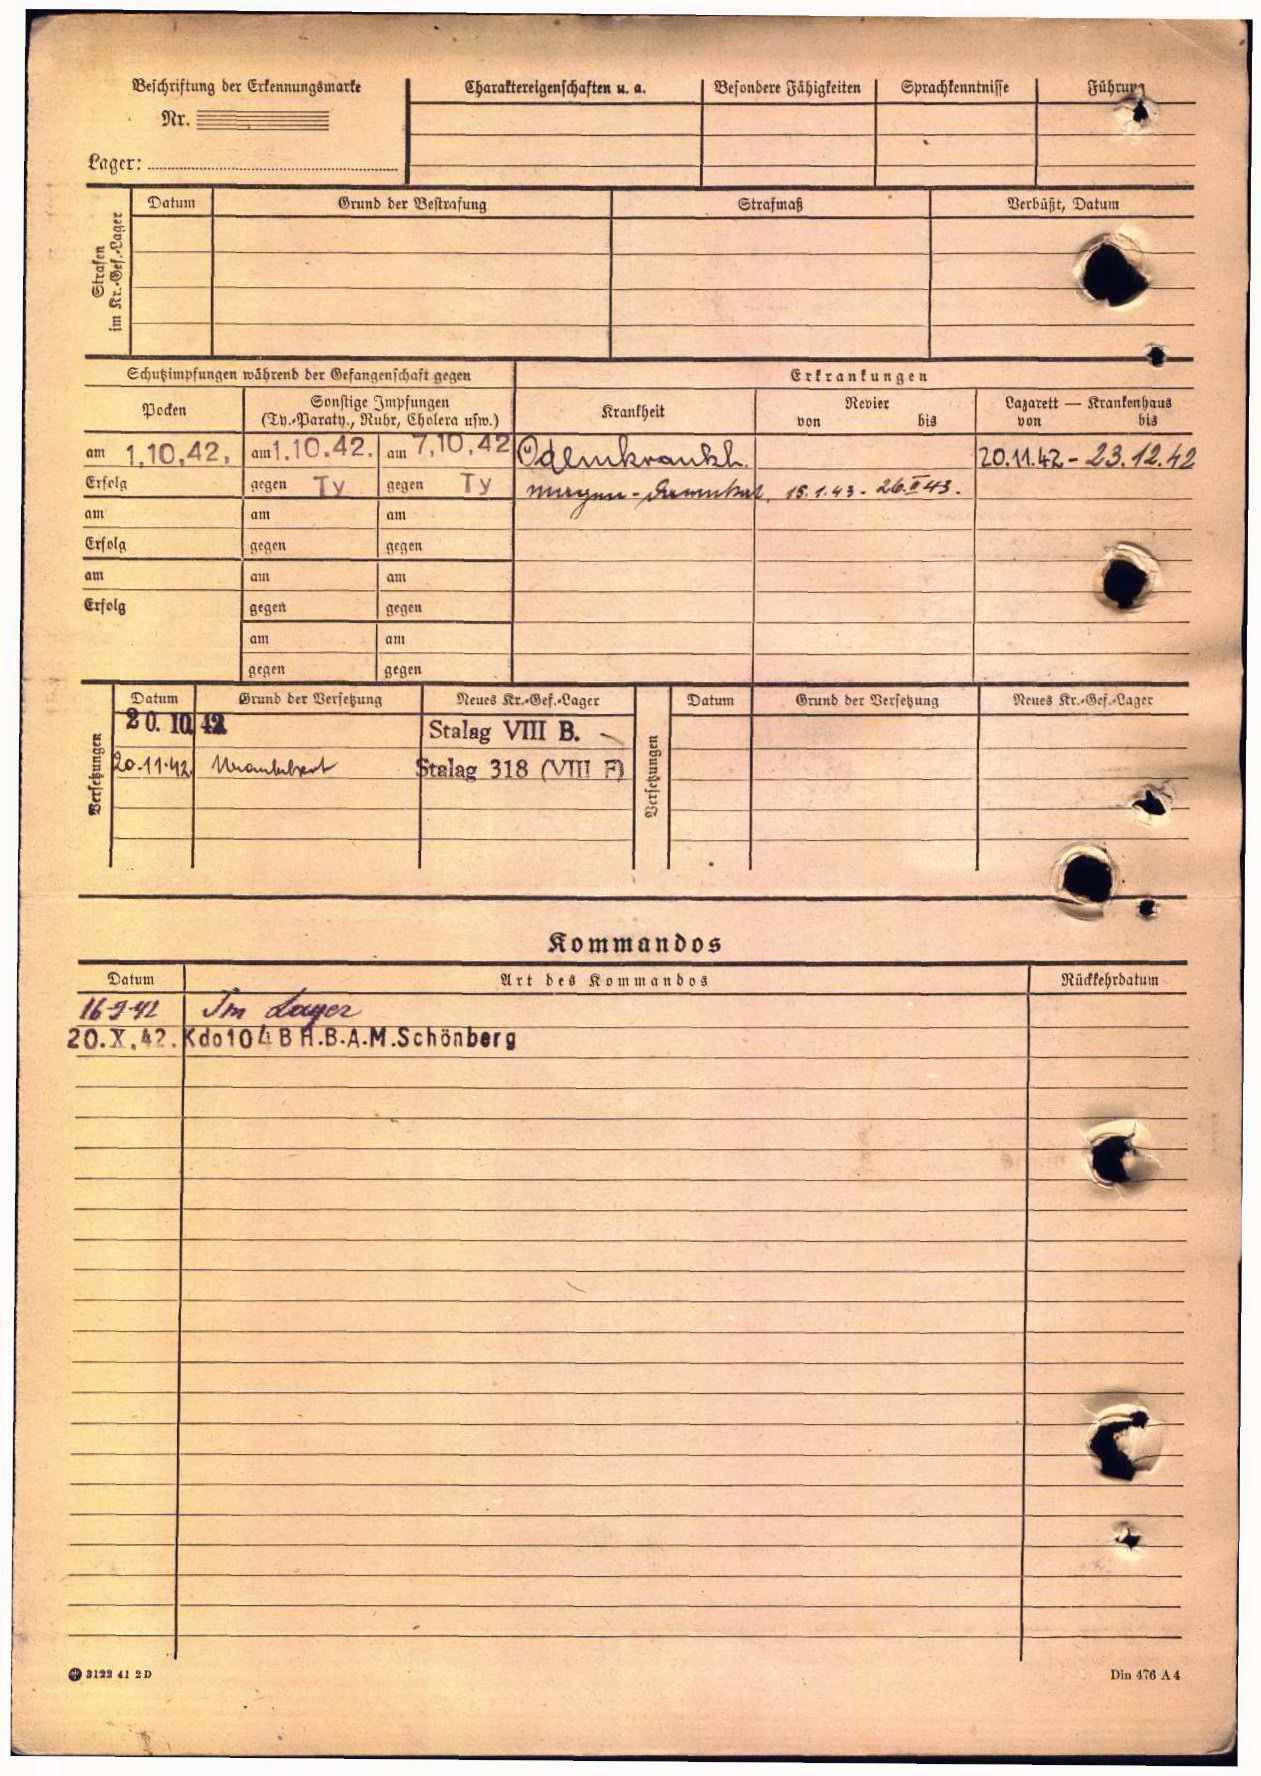 Beschriftung der Erkennungsmarke
Nr.
Lager:
Charaktereigenschaften u. a.
Besondere Fähigkeiten
Sprachkenntnisse
Führung
Strafen
im Kr.-Gef.-Lager
Datum
Grund der Bestrafung
Strafmaß
Verbüßt, Datum
Schutzimpfungen während der Gefangenschaft gegen
Erkrankungen
Pocken
Sonstige Impfungen
(Ty.-Paraty., Ruhr, Cholera usw.)
Krankheit
Revier
von bis
Lazarett — Krankenhaus
von bis
am 1.10.42. am 1.10.42. am 7.10.42 Ödemkrankh. 20.11.42 - 23.12.42
Erfolg gegen Ty gegen Ty 15.1.43 - 26.II 43.
am am am
Erfolg gegen gegen
am am am
Erfolg gegen gegen
am am
gegen gegen
Versetzungen
Datum Grund der Versetzung Neues Kr.-Gef.-Lager
20. 10. 42 Stalag VIII B.
20.11.42 Stalag 318 (VIII F)
Versetzungen
Datum Grund der Versetzung Neues Kr.-Gef.-Lager
Kommandos
Datum Art des Kommandos Rückkehrdatum
16-9-42 Im Lager
20.X.42. Kdo 104 B H.B.A.M.Schönberg
3123 41 2 D
Din 476 A 4